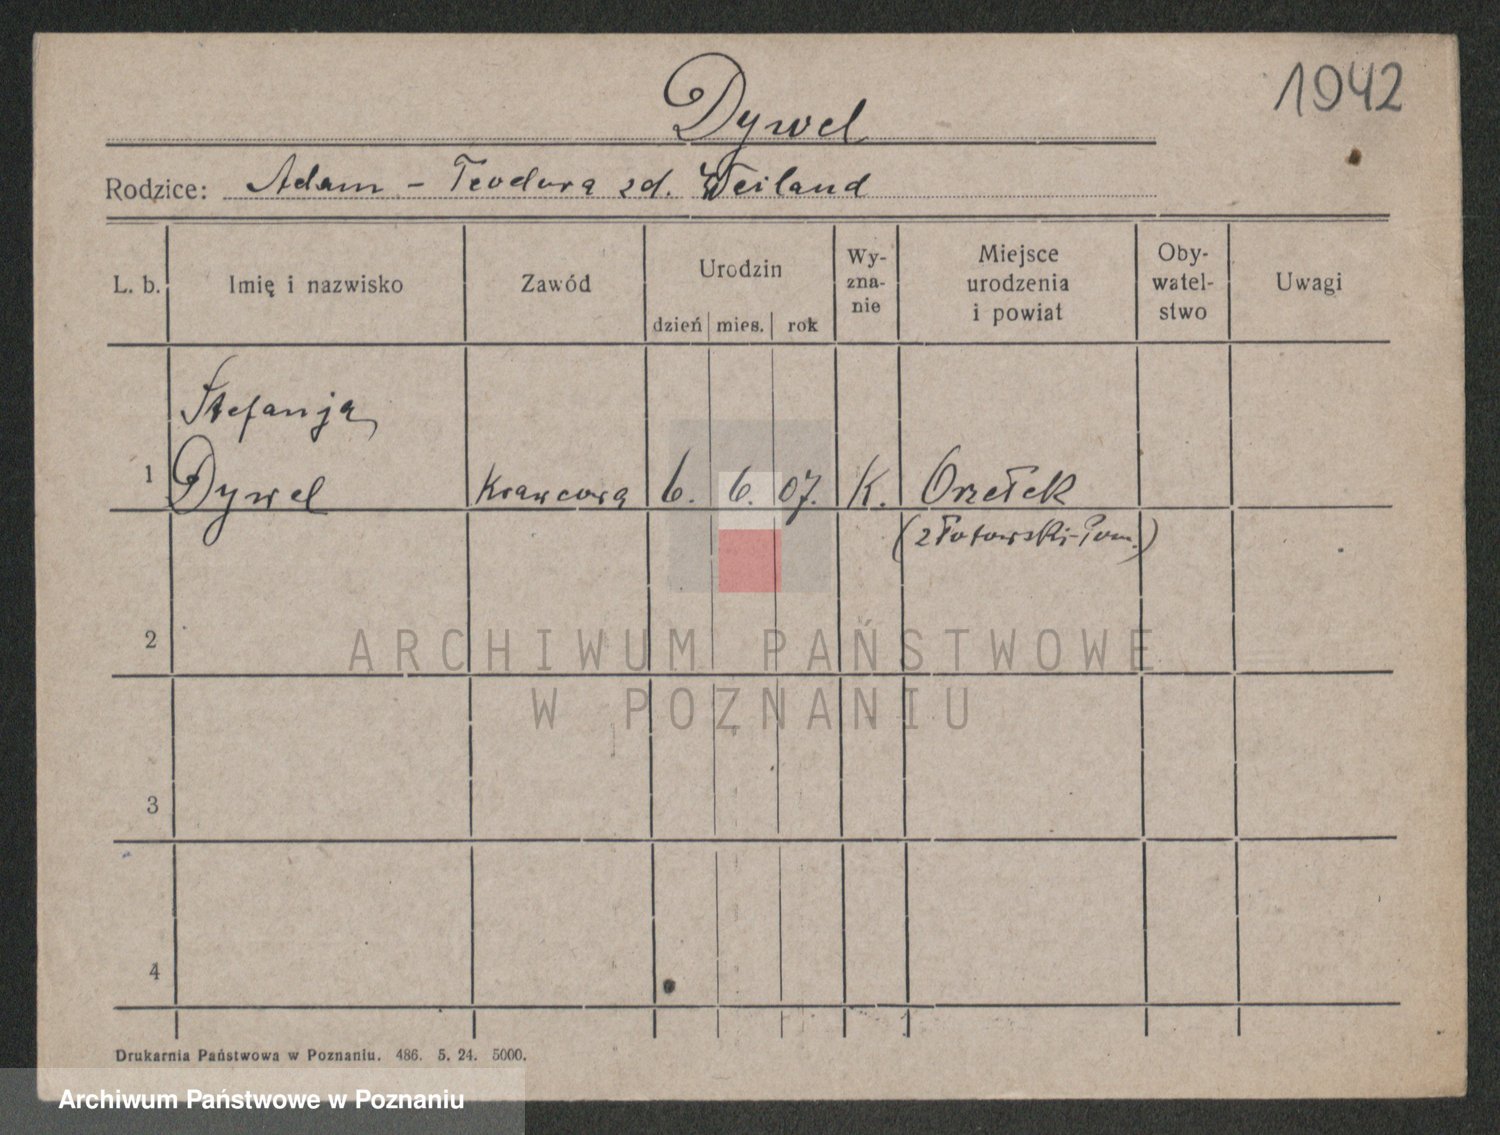 1942
Dywel
Rodzice: Adam - Teodora zd. Weiland
L. b. Imię i nazwisko Zawód Urodzin dzień mies. rok Wy- zna- nie Miejsce urodzenia i powiat Oby- watel- stwo Uwagi
Stefanja
1 Dywel Krawcowa 6. 6. 07. K. Orzełek
(złotowski-Pom.)
2
ARCHIWUM PAŃSTWOWE
W POZNANIU
3
4
Drukarnia Państwowa w Poznaniu. 486. 5. 24. 5000.
Archiwum Państwowe w Poznaniu